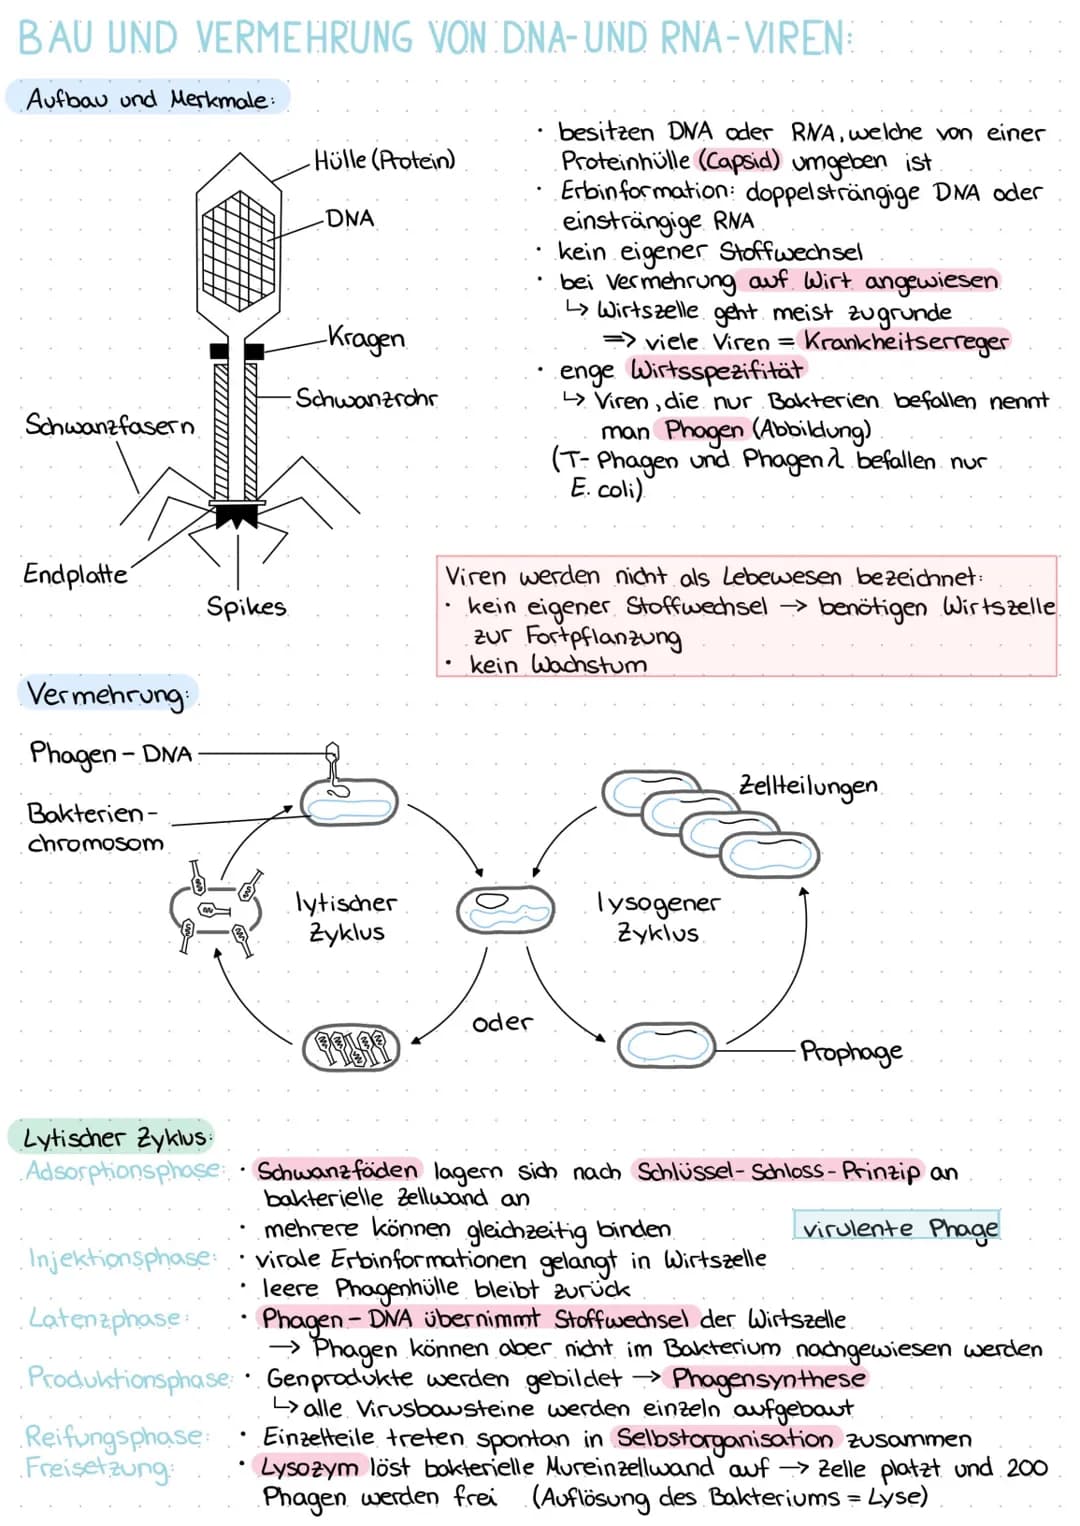 BAU UND VERMEHRUNG VON DNA-UND RNA-VIREN:
Aufbau und Merkmale:
Hülle (Protein)
DNA
Kragen
Schwanzrohr
Schwanzfasern
Endplatte
Spikes
· besitzen DNA oder RNA, welche von einer
Proteinhülle (Capsid) umgeben ist
· Erbinformation: doppelsträngige DNA oder
einsträngige RNA
· kein eigener Stoffwechsel
· bei Vermehrung auf Wirt angewiesen
↳ Wirtszelle geht meist zugrunde
=> viele Viren = Krankheitserreger
· enge Wirtsspezifität
↳ Viren, die nur Bakterien befallen nennt
man Phagen (Abbildung)
(T- Phagen und Phagen λ befallen nur
E. coli)
Viren werden nicht als Lebewesen bezeichnet:
· kein eigener Stoffwechsel → benötigen Wirtszelle
zur Fortpflanzung
· kein Wachstum
Vermehrung:
Phagen - DNA
Bakterien-
chromosom
Zellteilungen
lytischer
Zyklus
lysogener
Zyklus
oder
Prophage
Lytischer Zyklus:
Adsorptionsphase: · Schwanzfäden lagern sich nach Schlüssel-Schloss-Prinzip an
bakterielle Zellwand an
· mehrere können gleichzeitig binden
virulente Phage
Injektionsphase: · virale Erbinformationen gelangt in Wirtszelle
· leere Phagenhülle bleibt zurück
Latenzphase: · Phagen - DNA übernimmt Stoffwechsel der Wirtszelle
→ Phagen können aber nicht im Bakterium nachgewiesen werden
Produktionsphase: · Genprodukte werden gebildet → Phagensynthese
↳ alle Virusbausteine werden einzeln aufgebaut
Reifungsphase: · Einzelteile treten spontan in Selbstorganisation zusammen
Freisetzung: · Lysozym löst bakterielle Mureinzellwand auf → Zelle platzt und 200
Phagen werden frei (Auflösung des Bakteriums = Lyse)